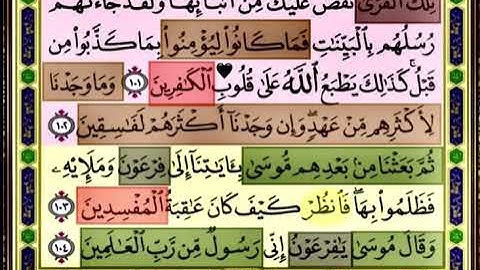 تِلْكَ ٱلْقُرَىٰ نَقُصُّ عَلَيْكَ مِنْ أَنۢبَآئِهَا ۚ وَلَقَدْ جَآءَتْهُمْ
رُسُلُهُم بِٱلْبَيِّنَٰتِ فَمَا كَانُوا۟ لِيُؤْمِنُوا۟ بِمَا كَذَّبُوا۟ مِن
قَبْلُ ۚ كَذَٰلِكَ يَطْبَعُ ٱللَّهُ عَلَىٰ قُلُوبِ ٱلْكَٰفِرِينَ ١٠١ وَمَا وَجَدْنَا
لِأَكْثَرِهِم مِّنْ عَهْدٍ ۖ وَإِن وَجَدْنَآ أَكْثَرَهُمْ لَفَٰسِقِينَ ١٠٢
ثُمَّ بَعَثْنَا مِنۢ بَعْدِهِم مُّوسَىٰ بِـَٔايَٰتِنَآ إِلَىٰ فِرْعَوْنَ وَمَلَإِي۟هِۦ
فَظَلَمُوا۟ بِهَا ۖ فَٱنظُرْ كَيْفَ كَانَ عَٰقِبَةُ ٱلْمُفْسِدِينَ ١٠٣
وَقَالَ مُوسَىٰ يَٰفِرْعَوْنُ إِنِّى رَسُولٌ مِّن رَّبِّ ٱلْعَٰلَمِينَ ١٠٤